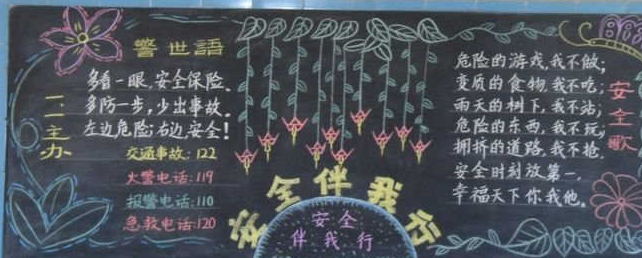 警世語
多看一眼,安全保险.
多防一步,少出事故.
左边危险;右边安全!
二一主办
交通事故: 122
火警电话: 119
报警电话: 110
急救电话: 120
安全伴我行
安全
伴我行
危险的游戏,我不做;
变质的食物,我不吃;
雨天的树下,我不站;
危险的东西,我不玩;
拥挤的道路,我不抢.
安全时刻放第一,
幸福天下你我他.
安全歌